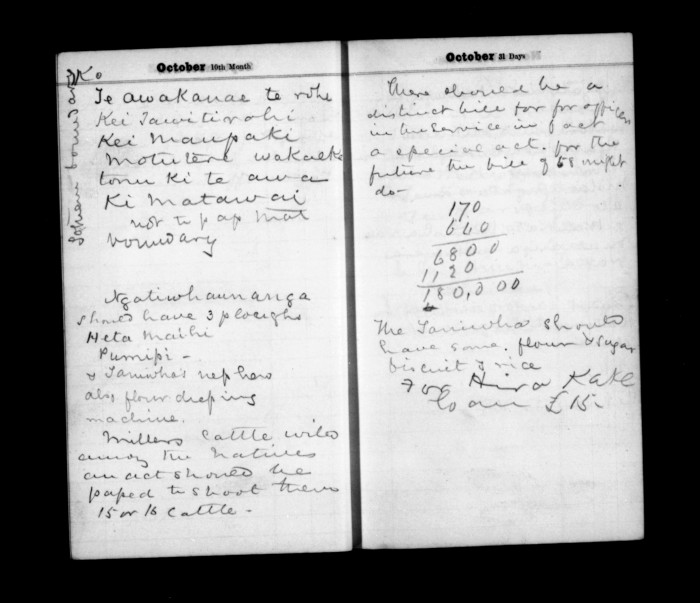 October 10th Month
Ko
Te awakanae te rohe
Kei Tawitirohi
Kei Maupaki
Motutere wakaeke
tonu ki te awa
Ki Matawai
not to pap Mat
boundary
Ngatiwhaunaunga
should have 3 ploughs
Heta Maihi
Pumipi -
& Taniwha's nephew
also flour dressing
machine.
Millers Cattle wild
among the Natives
an act should be
paped to shoot them
15 or 16 Cattle -
October 31 Days
There should be a
distinct bill for for officers
in the service in fact
a special act. for the
future the bill of 58 might
do -
170
640
6800
1120
180,000
The Taniwha should
have some. flour & sugar
biscuit & rice
For Hira Kake
loan £15-